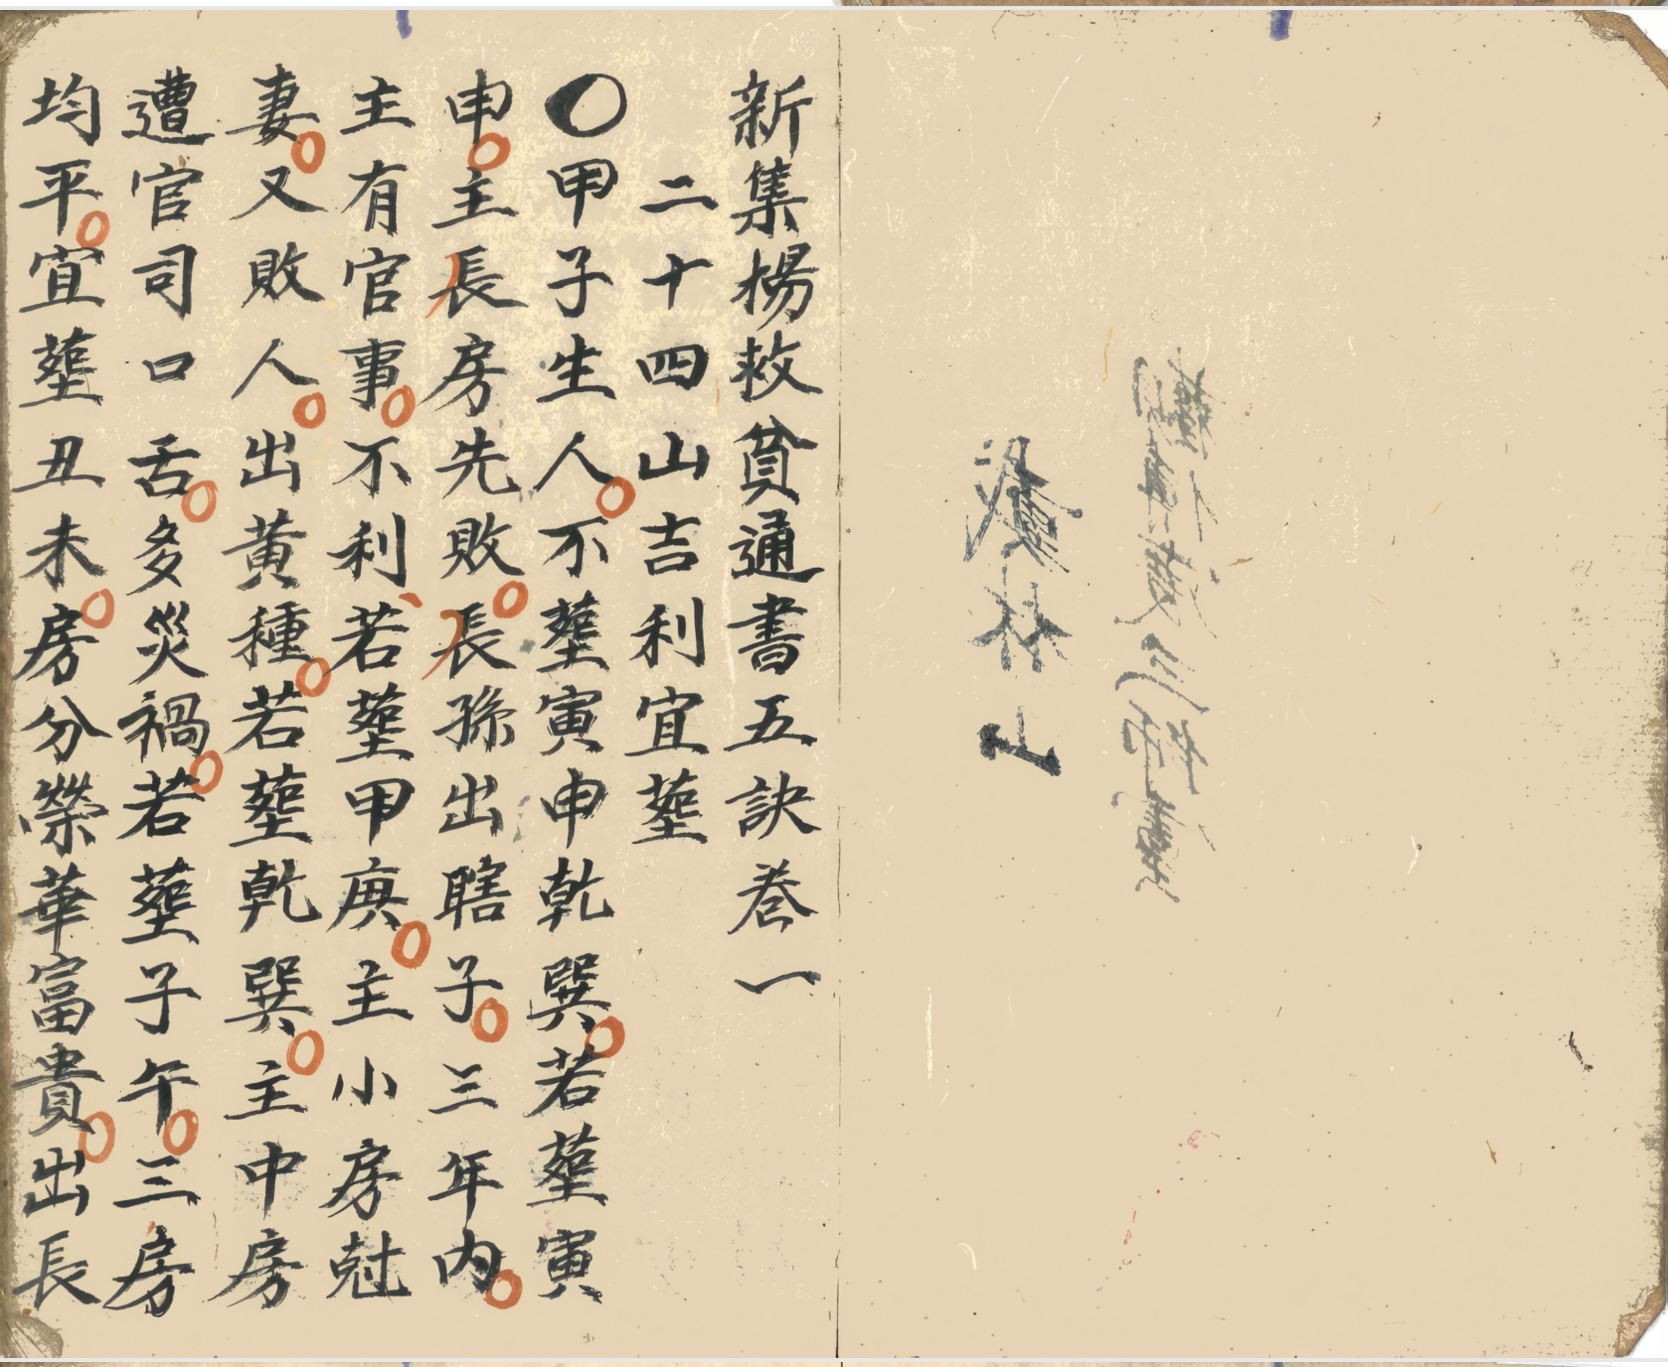 新集楊救貧通書五訣卷一
二十四山吉利宜塟
〇甲子生人不塟寅申乾巽若塟寅
申主長房先敗長孫出瞎子三年內
主有官事不利若塟甲庚主小房尅
妻又敗人出黄種若塟乾巽主中房
遭官司口舌多災禍若塟子午三房
均平宜塟丑未房分榮華富貴出長